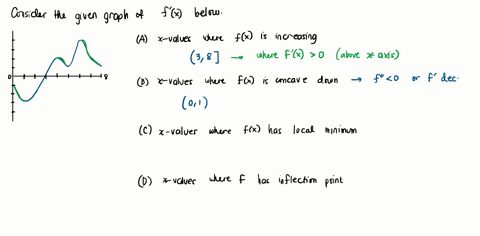 Consider the given graph of f'(x) below.
(A) x-values where f(x) is increasing
(3, 8] → where f'(x) > 0 (above x-axis)
(B) x-values where f(x) is concave down → f" < 0 or f' dec.
(0,1)
(C) x-values where f(x) has local minimum
(D) x-values where f has inflection point
0
8